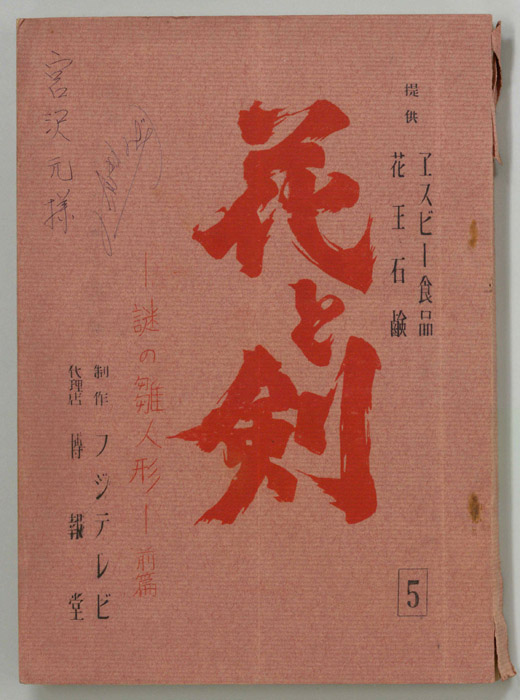 提供
ヱスビー食品
花王石鹸
花と剣
―謎の雛人形― 前篇
制作 フジテレビ
代理店 博報堂
宮沢元様
5